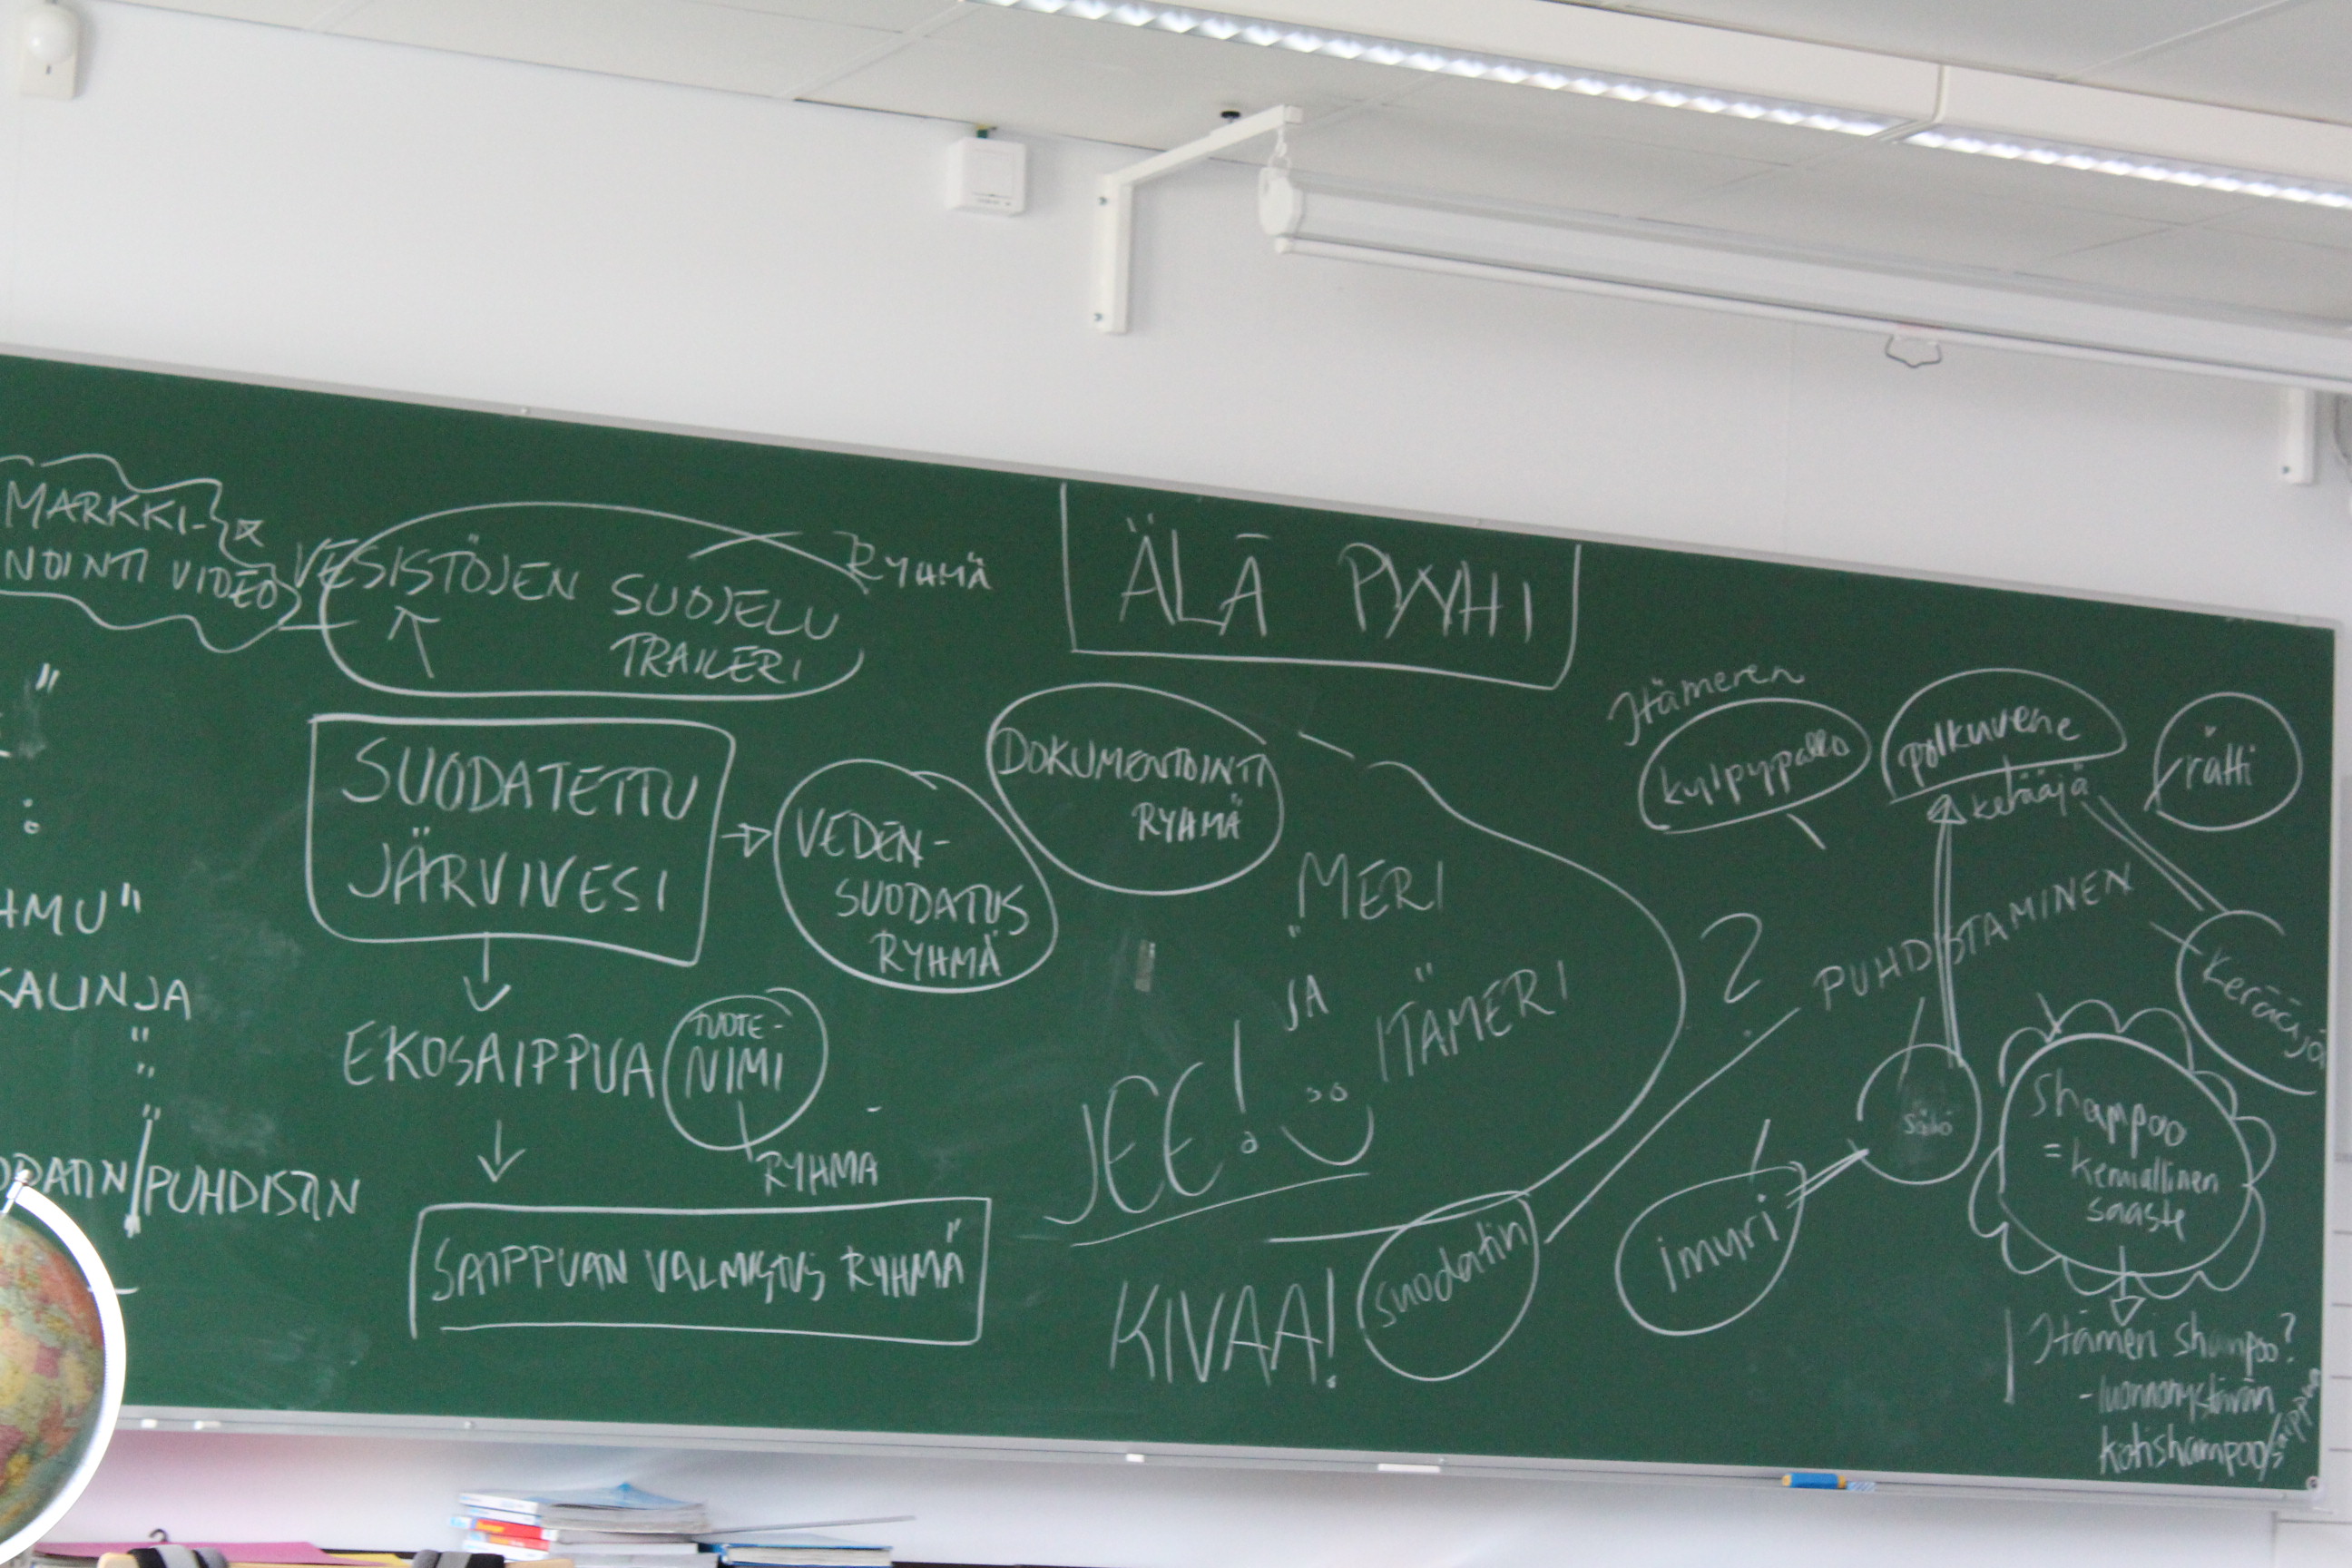 MARKKI-
NOINTI VIDEO
VESISTÖJEN SUOJELU
TRAILERI
RYHMÄ
ÄLÄ PYYHI
SUODATETTU
JÄRVIVESI
VEDEN-
SUODATUS
RYHMÄ
DOKUMENTOINTI
RYHMÄ
EKOSAIPPUA
TUOTE-
NIMI
RYHMÄ
SAIPPUAN VALMISTUS RYHMÄ
HMU"
KALINJA
ODATIN/PUHDISTIN
MERI
JA
ITÄMERI
JEE!
KIVAA!
?
PUHDISTAMINEN
Itämeren
kylpypallo
polkuvene
kerääjä
rätti
kerääjä
säiliö
imuri
suodatin
shampoo
= kemiallinen
saaste
Itämeri shampoo?
kotishampoo/saippua